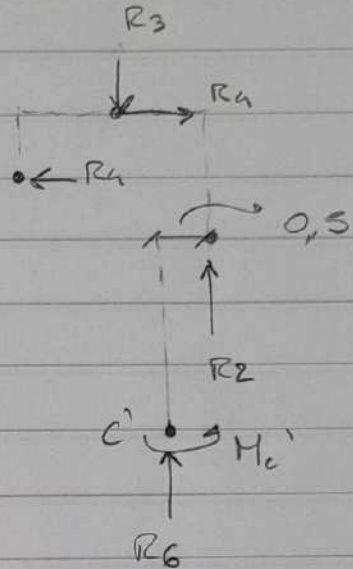 R3
R4
R4
0,5
R2
C' Mc'
R6